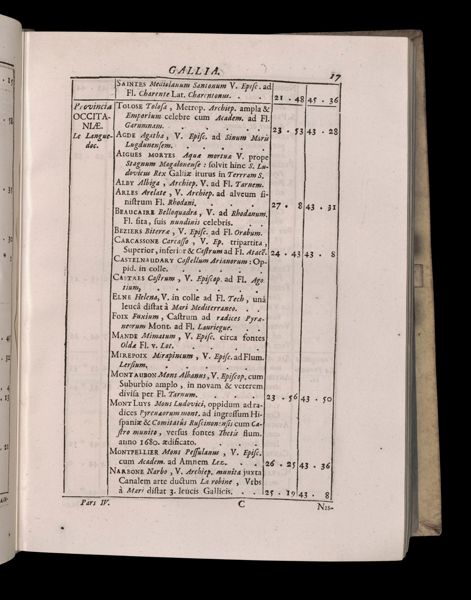 GALLIA.
17
SAINTES Mediolanum Santonum V. Episc. ad
Fl. Charente Lat. Charentonus. 21 . 48 45 . 36
Provincia
OCCITA-
NIÆ.
Le Langue-
doc.
TOLOSE Tolosa, Metrop. Archiep. ampla &
Emporium celebre cum Academ. ad Fl.
Garumnam. 23 . 53 43 . 28
AGDE Agatha, V. Episc. ad Sinum Maris
Lugdunensem.
AIGUES MORTES Aquæ mortuæ V. prope
Stagnum Magalonense : solvit hinc S. Lu-
dovicus Rex Galliæ iturus in Terram S.
ALBY Albiga, Archiep. V. ad Fl. Tarnem.
ARLES Arelate, V. Archiep. ad alveum si-
nistrum Fl. Rhodani. 27 . 8 43 . 31
BEAUCAIRE Belloquadra, V. ad Rhodanum.
Fl. sita, suis nundinis celebris.
BEZIERS Biterra, V. Episc. ad Fl. Orabum.
CARCASSONE Carcasso, V. Ep. tripartita,
Superior, inferior & Castrum ad Fl. Atacē. 24 . 43 43 . 8
CASTELNAUDARY Castellum Arianorum : Op-
pid. in colle.
CASTRES Castrum, V. Episcop. ad Fl. Ago
tium,
ELNE Helena, V. in colle ad Fl. Tech, unâ
leucâ distat à Mari Mediterraneo.
FOIX Fuxium, Castrum ad radices Pyre-
næorum Mont. ad Fl. Lauriegue.
MANDE Mimatum, V. Episc. circa fontes
Oldæ Fl. v. Lot.
MIREPOIX Mirapincum, V. Episc. ad Flum.
Lersium,
MONTAUBON Mons Albanus, V. Episcop. cum
Suburbio amplo, in novam & veterem
divisa per Fl. Tarnum. 23 . 56 43 . 50
MONT LUYS Mons Ludovici, oppidum ad ra-
dices Pyrenæorum mont. ad ingressum Hi-
spaniæ & Comitatûs Ruscinonensis cum Ca-
stro munito, versus fontes Thetis flum.
anno 1680. ædificato.
MONTPELLIER Mons Pessulanus, V. Episc.
cum Academ. ad Amnem Lez. 26 . 25 43 . 36
NARBONE Narbo, V. Archiep. munita juxta
Canalem arte ductum La robine, Urbs
à Mari distat 3. leucis Gallicis. 25 . 19 43 . 8
Pars IV.
C
Nis-